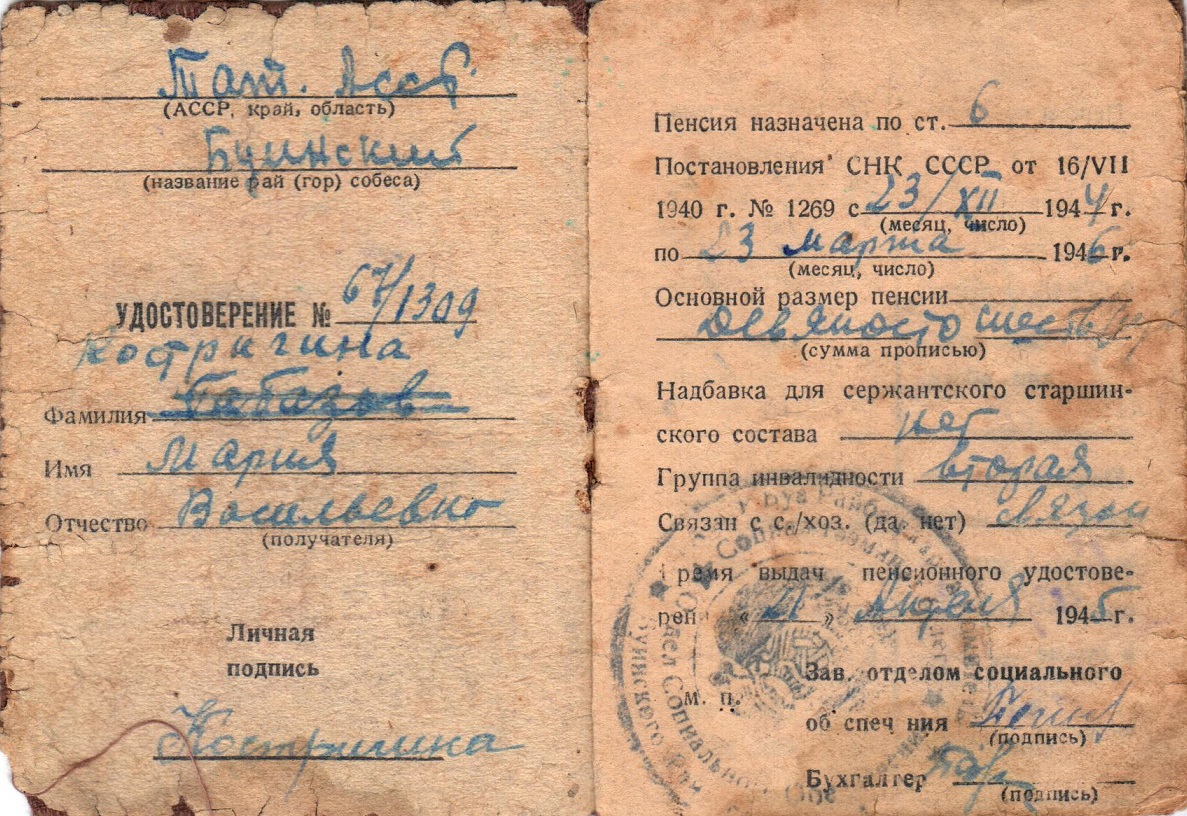 Тат. Асср.
(АССР, край, область)
Буинский
(название рай (гор) собеса)
УДОСТОВЕРЕНИЕ № 67/1309
Костригина
Фамилия
Имя Мария
Отчество Васильевна
(получателя)
Личная
подпись
Костригина
Пенсия назначена по ст. 6
Постановления СНК СССР от 16/VII
1940 г. № 1269 с 23/XII 1944 г.
(месяц, число)
по 23 марта 1946 г.
(месяц, число)
Основной размер пенсии
девяносто шесть
(сумма прописью)
Надбавка для сержантского старшин-
ского состава нет
Группа инвалидности вторая
Связан с с./хоз. (да, нет) связан
Время выдач пенсионного удостове-
рен „21" Апреля 1945 г.
Зав. отделом социального
м. п.
об спеч ния
(подпись)
Бухгалтер
(подпись)